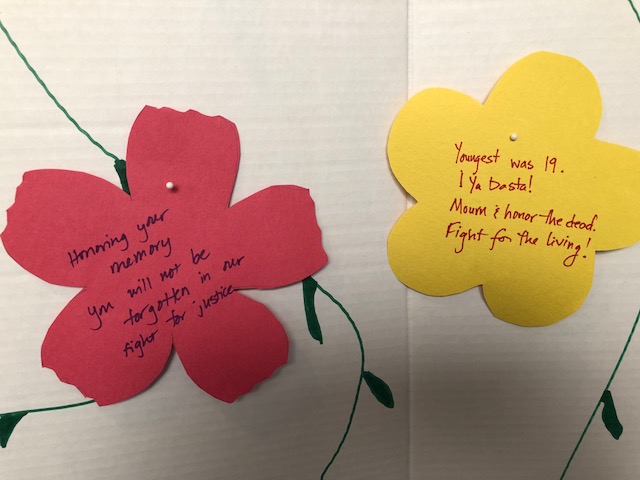 Honoring your
memory
you will not be
forgotten in our
fight for justice
Youngest was 19.
¡Ya basta!
Mourn & honor the dead.
Fight for the living!